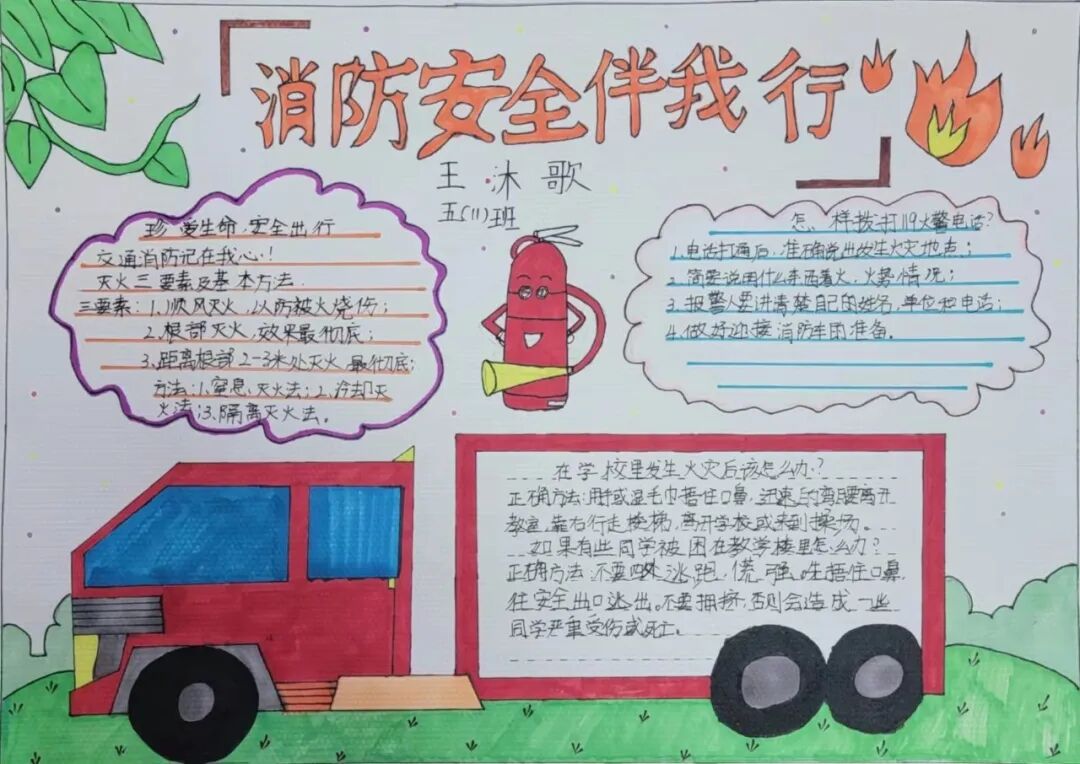 消防安全伴我行
王沐歌
五(11)班
珍爱生命,安全出行
交通消防记在我心!
灭火三要素及基本方法
三要素:1.顺风灭火,以防被火烧伤;
2.根部灭火,效果最彻底;
3.距离根部2-3米处灭火最彻底;
方法:1.窒息灭火法;2.冷却灭
火法;3.隔离灭火法。
怎样拨打119火警电话?
1.电话打通后,准确说出发生火灾地点;
2.简要说明什么东西着火,火势情况;
3.报警人要讲清楚自己的姓名,单位和电话;
4.做好迎接消防车的准备。
在学校里发生火灾后该怎么办?
正确方法:用手或湿毛巾捂住口鼻,迅速的弯腰离开
教室,靠右行走楼梯,离开学校或来到操场。
如果有些同学被困在教学楼里怎么办?
正确方法:不要四处逃跑,慌张。先捂住口鼻,
往安全出口逃出。不要拥挤,否则会造成一些
同学严重受伤或死亡。